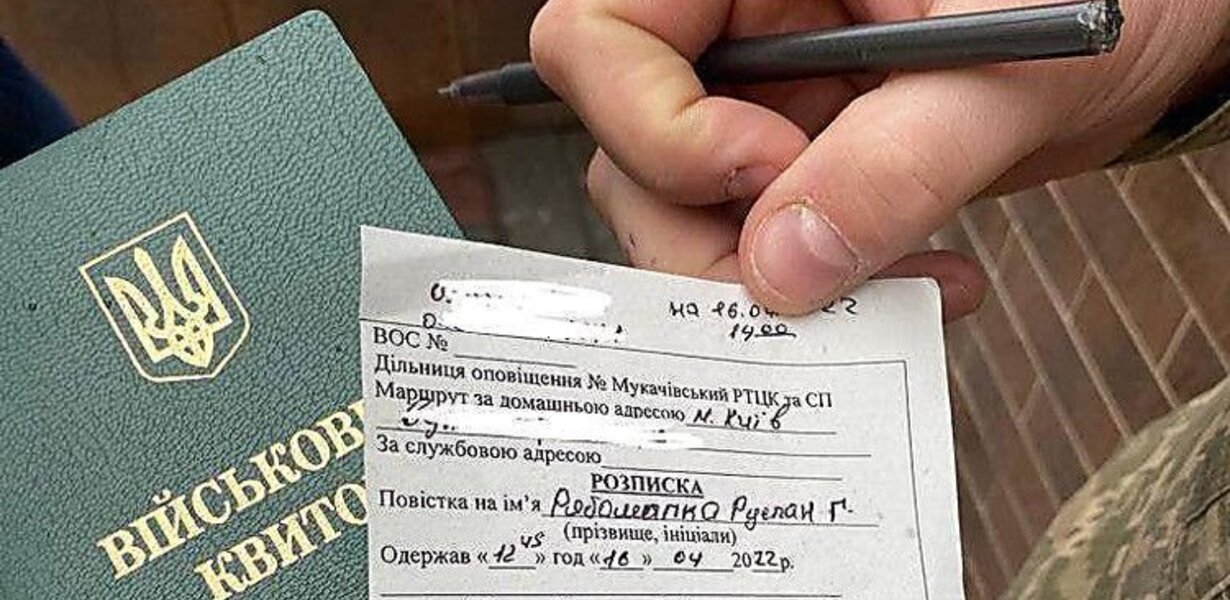 ВІЙСЬКОВ
КВИТО
на 16.0 22
14 00
ВОС №
Дільниця оповіщення № Мукачівський РТЦК та СП
Маршрут за домашньою адресою м. Київ
За службовою адресою
РОЗПИСКА
Повістка на ім'я Руслан Г.
(прізвище, ініціали)
Одержав «12 45» год «16» 04 2022 р.